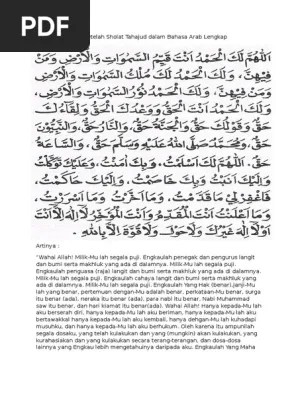 PDF
etelah Sholat Tahajud dalam Bahasa Arab Lengkap
اَللّٰهُمَّ لَكَ الْحَمْدُ اَنْتَ قَيِّمُ السَّمٰوَاتِ وَالْاَرْضِ وَمَنْ
فِيْهِنَّ، وَلَكَ الْحَمْدُ لَكَ مُلْكُ السَّمٰوَاتِ وَالْاَرْضِ
وَمَنْ فِيْهِنَّ، وَلَكَ الْحَمْدُ نُوْرُ السَّمٰوَاتِ وَالْاَرْضِ،
وَلَكَ الْحَمْدُ اَنْتَ الْحَقُّ وَوَعْدُكَ الْحَقُّ وَلِقَاءُكَ
حَقٌّ وَقَوْلُكَ حَقٌّ وَالْجَنَّةُ حَقٌّ، وَالنَّارُ حَقٌّ، وَالنَّبِيُّوْنَ
حَقٌّ، وَمُحَمَّدٌ صَلَّى اللهُ عَلَيْهِ وَسَلَّمَ حَقٌّ، وَالسَّاعَةُ
حَقٌّ، اَللّٰهُمَّ لَكَ اَسْلَمْتُ، وَبِكَ اٰمَنْتُ، وَعَلَيْكَ تَوَكَّلْتُ
وَاِلَيْكَ اَنَبْتُ وَبِكَ خَاصَمْتُ، وَاِلَيْكَ حَاكَمْتُ،
فَاغْفِرْلِيْ مَاقَدَّمْتُ، وَمَا اَخَّرْتُ وَمَا اَسْرَرْتُ،
وَمَا اَعْلَنْتُ اَنْتَ الْمُقَدِّمُ وَاَنْتَ الْمُؤَخِّرُ لَا اِلٰهَ اِلَّا اَنْتَ
اَوْلَا اِلٰهَ غَيْرُكَ وَلَا حَوْلَ وَلَا قُوَّةَ اِلَّا بِاللهِ.
Artinya :
"Wahai Allah! Milik-Mu lah segala puji. Engkaulah penegak dan pengurus langit
dan bumi serta makhluk yang ada di dalamnya. Milik-Mu lah segala puji.
Engkaulah penguasa (raja) langit dan bumi serta makhluk yang ada di dalamnya.
Milik-Mu lah segala puji. Engkaulah cahaya langit dan bumi serta makhluk yang
ada di dalamnya. Milik-Mu lah segala puji. Engkaulah Yang Hak (benar),janji-Mu
lah yang benar, pertemuan dengan-Mu adalah benar, perkataan-Mu benar, surga
itu benar (ada), neraka itu benar (ada), para nabi itu benar, Nabi Muhammad
saw itu benar, dan hari kiamat itu benar(ada). Wahai Allah! Hanya kepada-Mu lah
aku berserah diri, hanya kepada-Mu lah aku beriman, hanya kepada-Mu lah aku
bertawakkal hanya kepada-Mu lah aku kembali, hanya dengan-Mu lah kuhadapi
musuhku, dan hanya kepada-Mu lah aku berhukum. Oleh karena itu ampunilah
segala dosaku, yang telah kulakukan dan yang (mungkin) akan kulakukan, yang
kurahasiakan dan yang kulakukan secara terang-terangan, dan dosa-dosa
lainnya yang Engkau lebih mengetahuinya daripada aku. Engkaulah Yang Maha